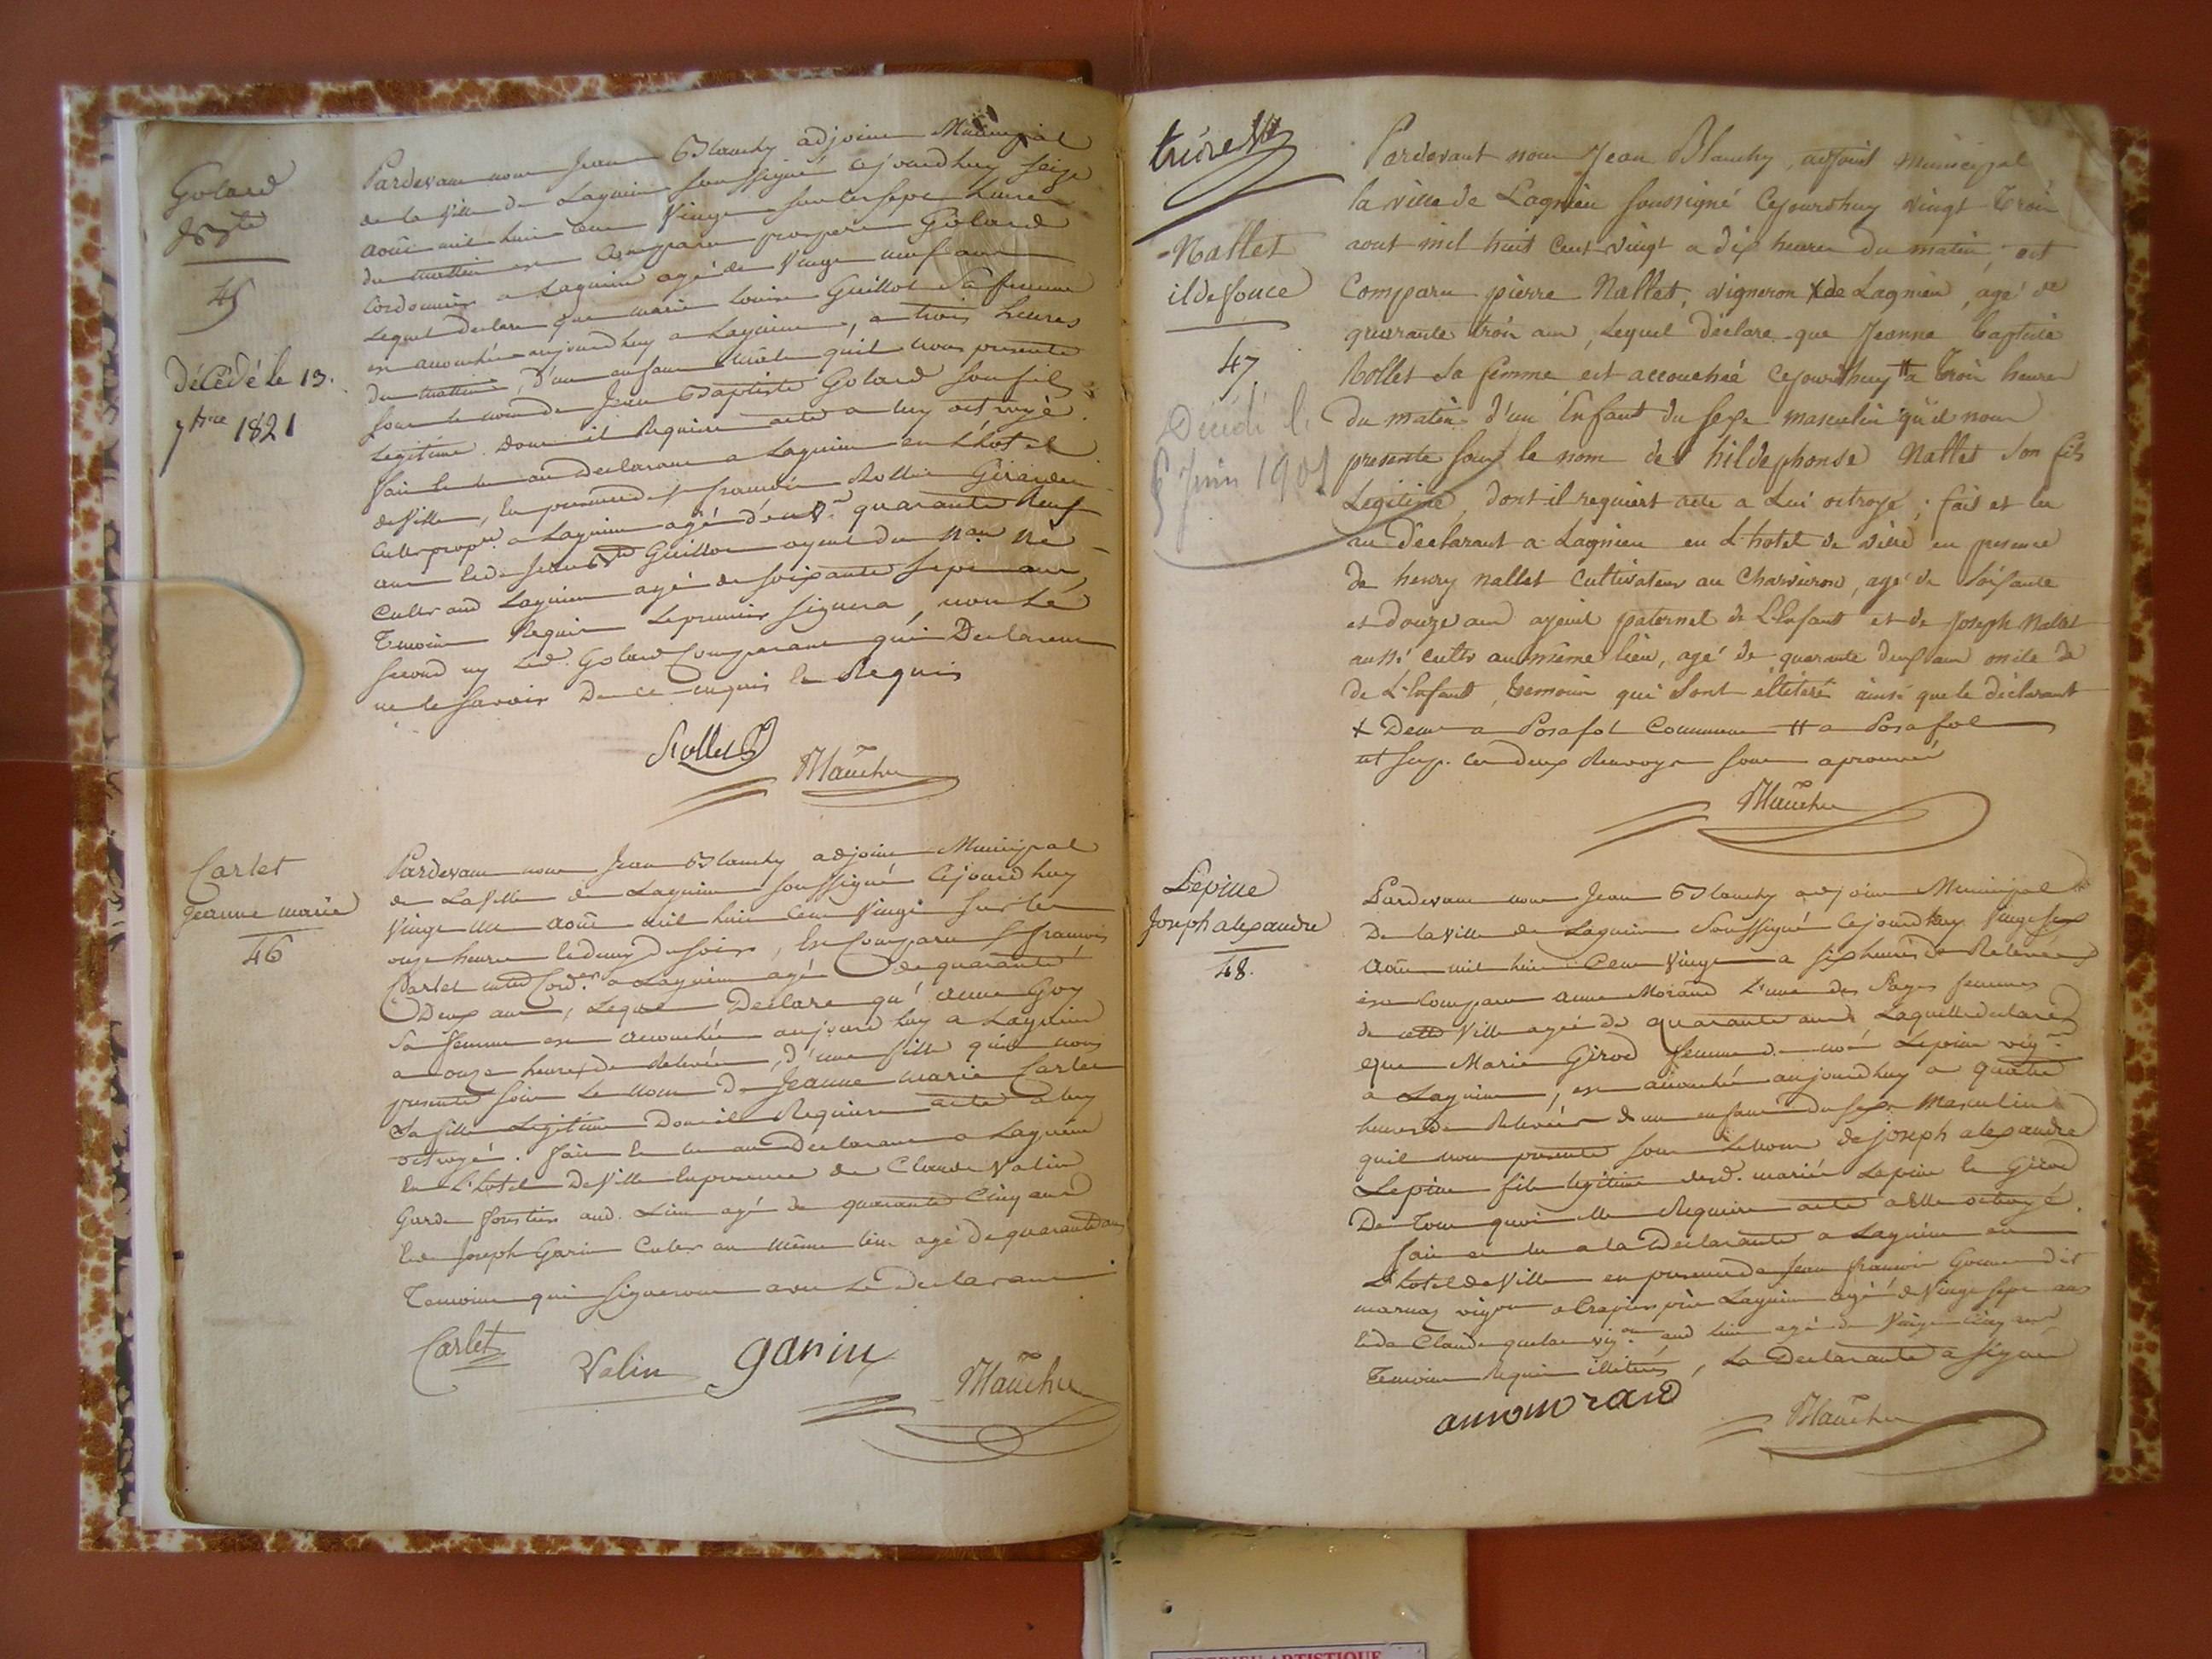 Golard
Jn Bte
45
décédé le 13.
7bre 1821
Pardevant nous Jean Blanchy adjoint Municipal
de la Ville de Lagnieu soussigné cejourdhuy seize
août mil huit cent Vingt sur les sept heures
du matin est Comparu prosper Golard
Cordonnier a Lagnieu agé de Vingt neuf ans
Lequel declare que marie Louise Guillot Sa femme
est accouchée aujourdhuy a Lagnieu, a trois heures
du matin, d'un enfant mâle quil nous presente
sous le nom de Jean Baptiste Golard son fils
Legitime. Dont il Requiert acte a luy octroyé.
fait et lu au declarant a Lagnieu en L'hotel
de Ville, En presence de francois Rollet
Cultr propre a Lagnieu agé d'env. quarante Neuf
ans et de Jean Bte Guillot ayeul du Nau Né
Cultr aud Lagnieu agé de soixante sept ans
Temoins Requis Le premier signera, non Le
second ny Led. Golard Comparant qui Declarent
ne le savoir De ce enquis et Requis
Rollet
Blanchy
Carlet
Jeanne marie
46
Pardevant nous Jean Blanchy adjoint Municipal
de La Ville de Lagnieu soussigné Cejourdhuy
Vingt un Août mil huit Cent Vingt sur les
onze heures du soir, Est Comparu francois
Carlet Cord.er a Lagnieu agé de quarante
Deux ans, Lequel Declare qu'anne Goy
Sa femme est accouchée aujourdhuy a Lagnieu
a onze heures de Relevée, d'une fille quil nous
presente sous Le nom de Jeanne marie Carlet
Sa fille Legitime Dont il Requiert acte a luy
octroyé. fait et lu au Declarant a Lagnieu
En L'hotel De Ville En presence de Claude Valin
Garde forestier aud. Lieu agé de quarante Cinq ans
Et de Joseph Garin Cultr au même lieu agé de quarante ans
Temoins qui signeront avec Le declarant
Carlet
Valin
garin
Blanchy
Nallet
ildefonce
47
Décédé le
6 Juin 1901
Pardevant nous Jean Blanchy, adjoint municipal
la ville de Lagnieu soussigné Cejourdhuy vingt Trois
aout mil huit Cent vingt a dix heures du matin, est
Comparu pierre Nallet, vigneron X de Lagnieu, agé de
quarante trois ans, Lequel déclare que Jeanne baptiste
Rollet Sa femme est accouchée Cejourdhuy # a Trois heures
du matin d'un Enfant du sexe masculin qu'il nous
presente sous le nom de hildephonse Nallet Son fils
Legitime, dont il requiert acte a Lui octroyé; fait et lu
au déclarant a Lagnieu en L'hotel de ville en presence
de henry nallet Cultivateur au Charveyron, agé de Soixante
et douze ans ayeuil paternel de L'Enfant et de Joseph Nallet
aussi cultr au même lieu, agé de quarante deux ans oncle de
de L'Enfant, temoins qui Sont illitérés ainsi que le déclarant
X Demt a Posafol Commune # a Posafol
Les deux Renvoys sont aprouvés
Blanchy
Lépine
Joseph alexandre
48.
Pardevant nous Jean Blanchy adjoint Municipal
De la Ville de Lagnieu Soussigné Cejourdhuy Vingt six
Août mil huit Cent Vingt a six heures De Relevée
est Comparu anne Morand L'une des Sages femmes
de cette Ville agée de quarante ans Laquelle declare
que Marie Girod femme de Lepine vig.on
a Lagnieu, est accouchée aujourdhuy a quatre
heures De Relevée d'un enfant du sexe Masculin
quil nous presente sous Le nom de joseph alexandre
Lepine fils legitime desd. mariés Lepine et Girod
De Tout quoi elle Requiert acte a Elle octroyé.
fait et lu a la Declarante a Lagnieu en
L'hotel de Ville en presence de Jean francois dit
marnas vigon a Lagnieu agé de Vingt sept ans
et de Claude vig.on aud lieu agé de Vingt Cinq ans
Temoins Requis illiterés, La Declarante a signé
anne morand
Blanchy